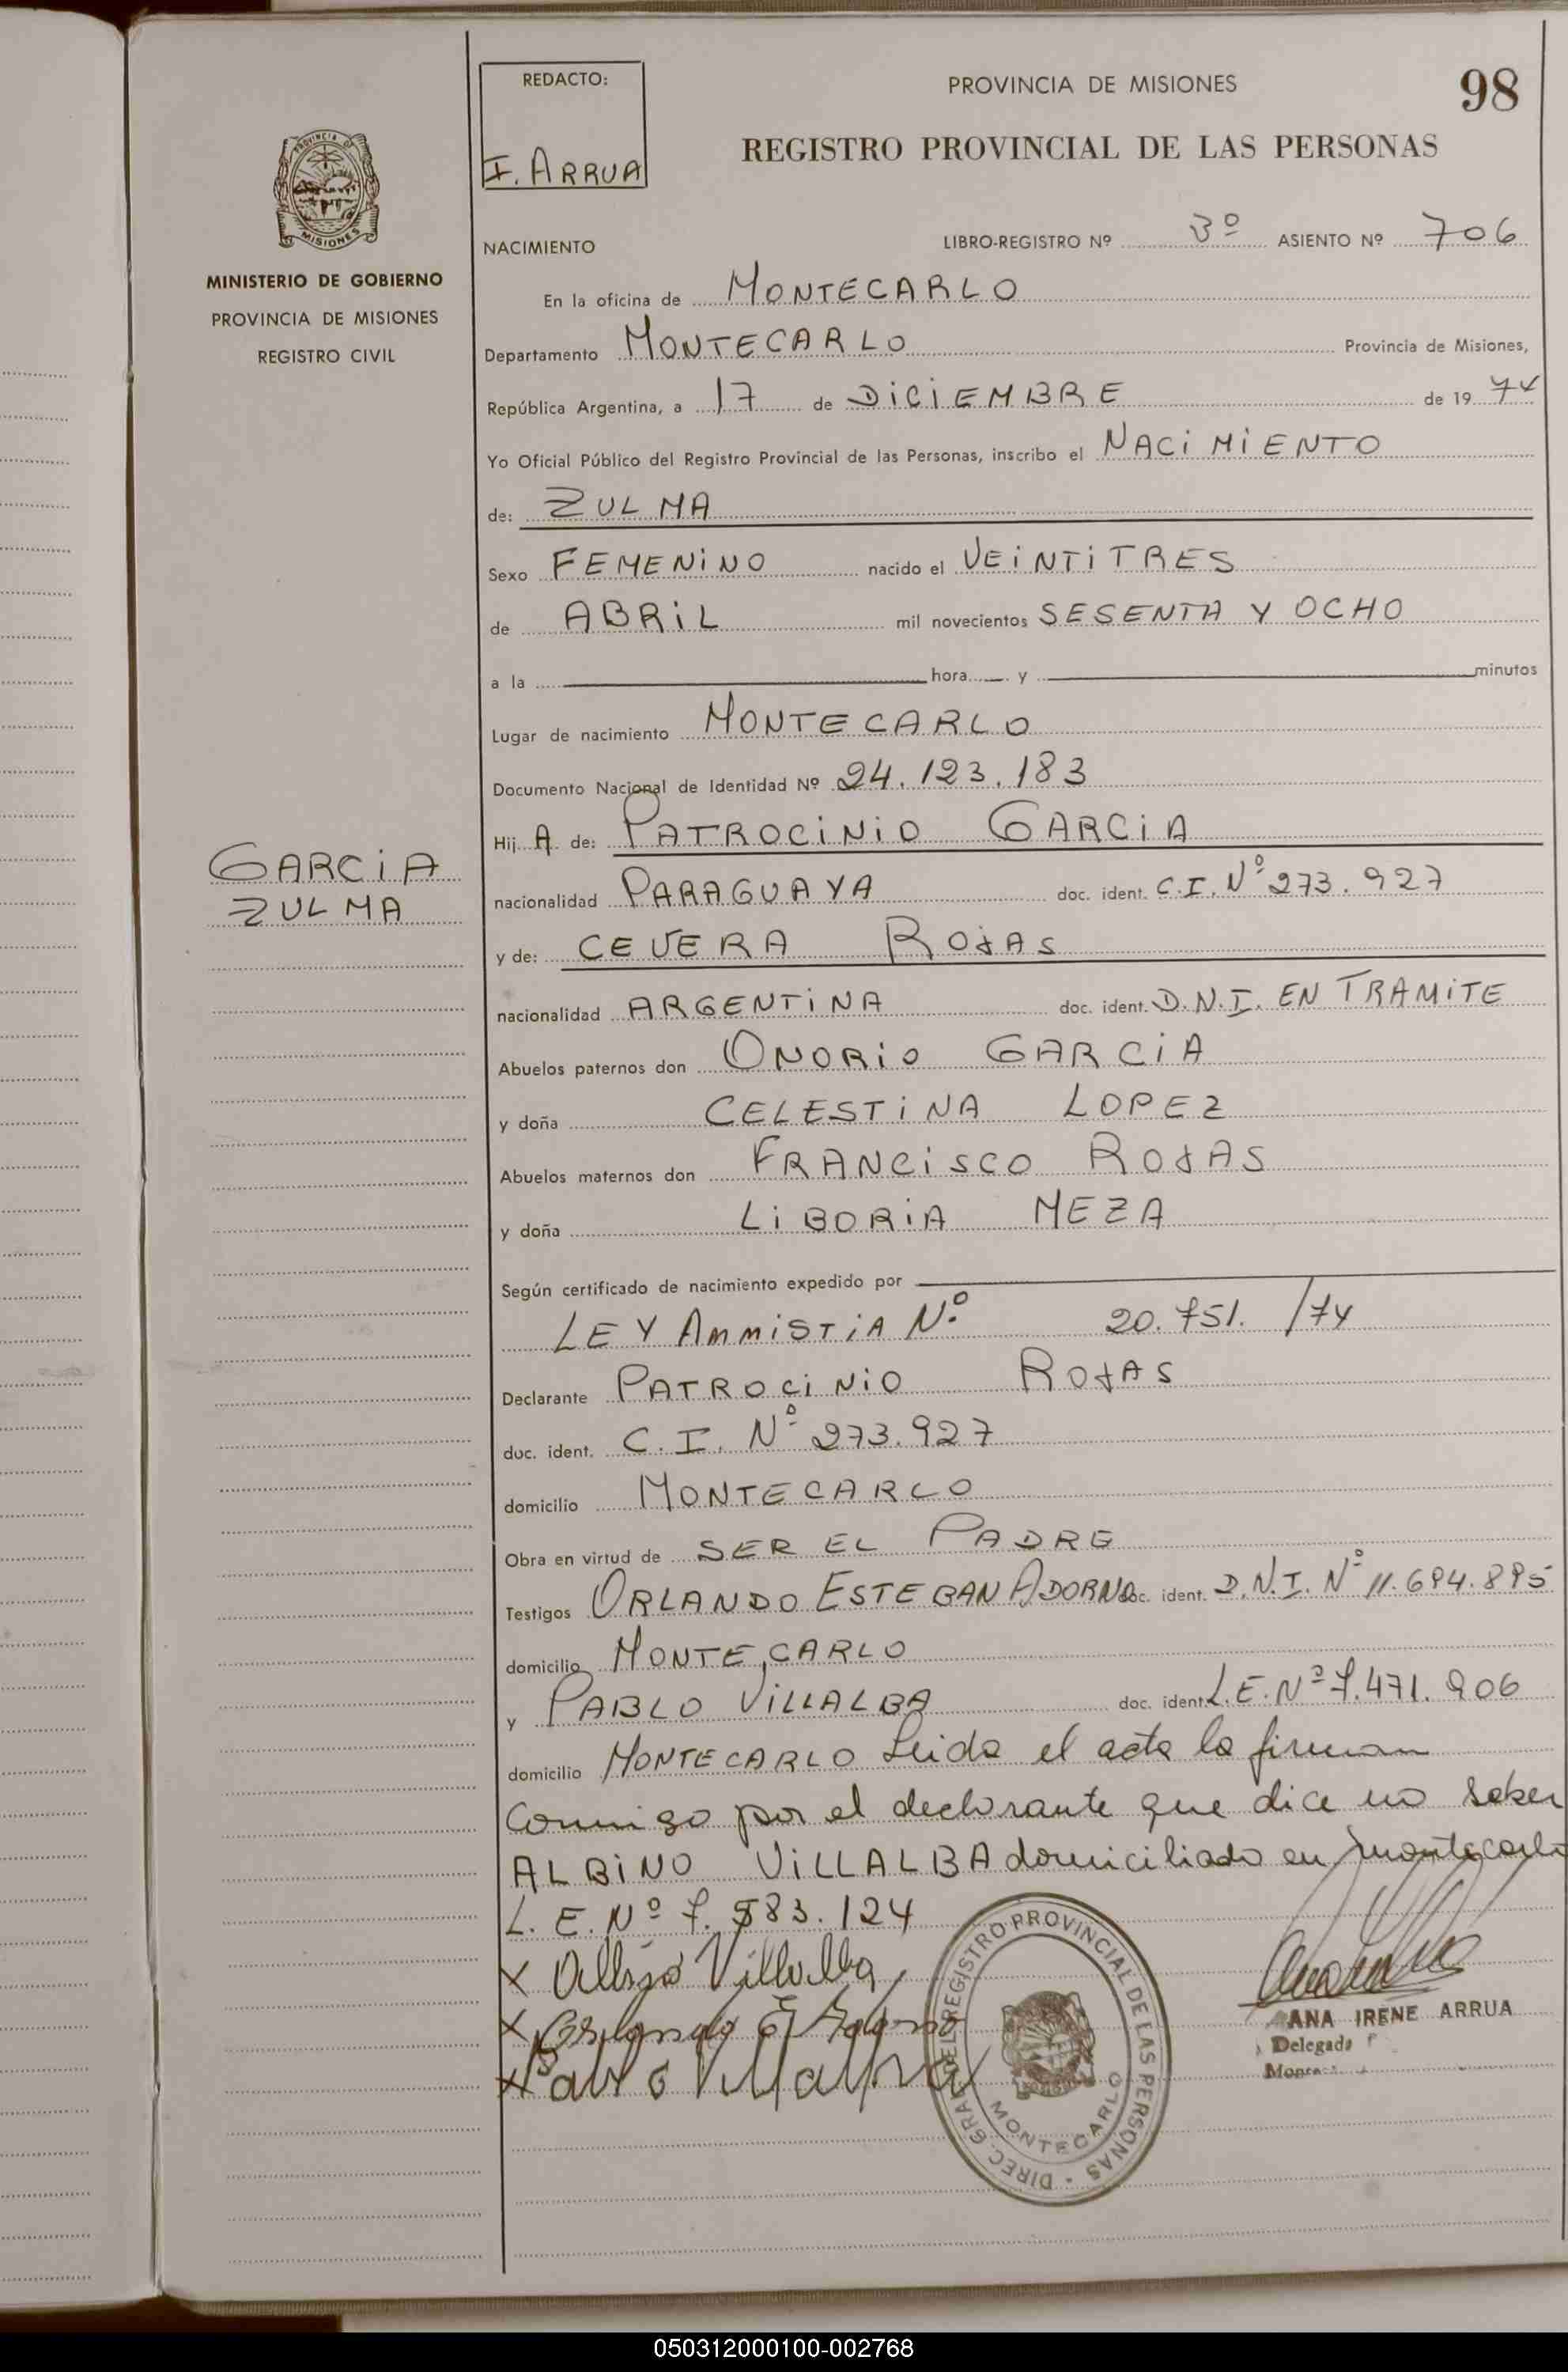 REDACTO:
I. ARRUA
PROVINCIA DE MISIONES
98
REGISTRO PROVINCIAL DE LAS PERSONAS
PROVINCIA DE
MISIONES
MINISTERIO DE GOBIERNO
PROVINCIA DE MISIONES
REGISTRO CIVIL
NACIMIENTO
LIBRO-REGISTRO Nº 3º ASIENTO Nº 706
En la oficina de MONTECARLO
Departamento MONTECARLO Provincia de Misiones,
República Argentina, a 17 de DICIEMBRE de 19 74
Yo Oficial Público del Registro Provincial de las Personas, inscribo el NACIMIENTO
de: ZULMA
Sexo FEMENINO nacido el VEINTITRES
de ABRIL mil novecientos SESENTA Y OCHO
a la hora y minutos
Lugar de nacimiento MONTECARLO
Documento Nacional de Identidad Nº 24.123.183
Hij A de: PATROCINIO GARCIA
GARCIA
ZULMA
nacionalidad PARAGUAYA doc. ident. C.I. Nº 273.927
y de: CEVERA ROJAS
nacionalidad ARGENTINA doc. ident. D.N.I. EN TRAMITE
Abuelos paternos don ONORIO GARCIA
y doña CELESTINA LOPEZ
Abuelos maternos don FRANCISCO ROJAS
y doña LIBORIA MEZA
Según certificado de nacimiento expedido por
LEY AMMISTIA Nº 20.751. /74
Declarante PATROCINIO ROJAS
doc. ident. C.I. Nº 273.927
domicilio MONTECARLO
Obra en virtud de SER EL PADRE
Testigos ORLANDO ESTEBAN ADORNO doc. ident. D.N.I. Nº 11.694.895
domicilio MONTECARLO
y PABLO VILLALBA doc. ident. L.E. Nº 7.471.906
domicilio MONTECARLO Leida el acta la firman
Conmigo por el declarante que dice no saber
ALBINO VILLALBA domiciliado en montecarlo
L.E. Nº 7.583.124
X Albino Villalba
X Orlando E Adorno
X Pablo Villalba
DIREC. GRAL. DEL REGISTRO PROVINCIAL DE LAS PERSONAS -
MONTECARLO
ANA IRENE ARRUA
Delegada
050312000100-002768